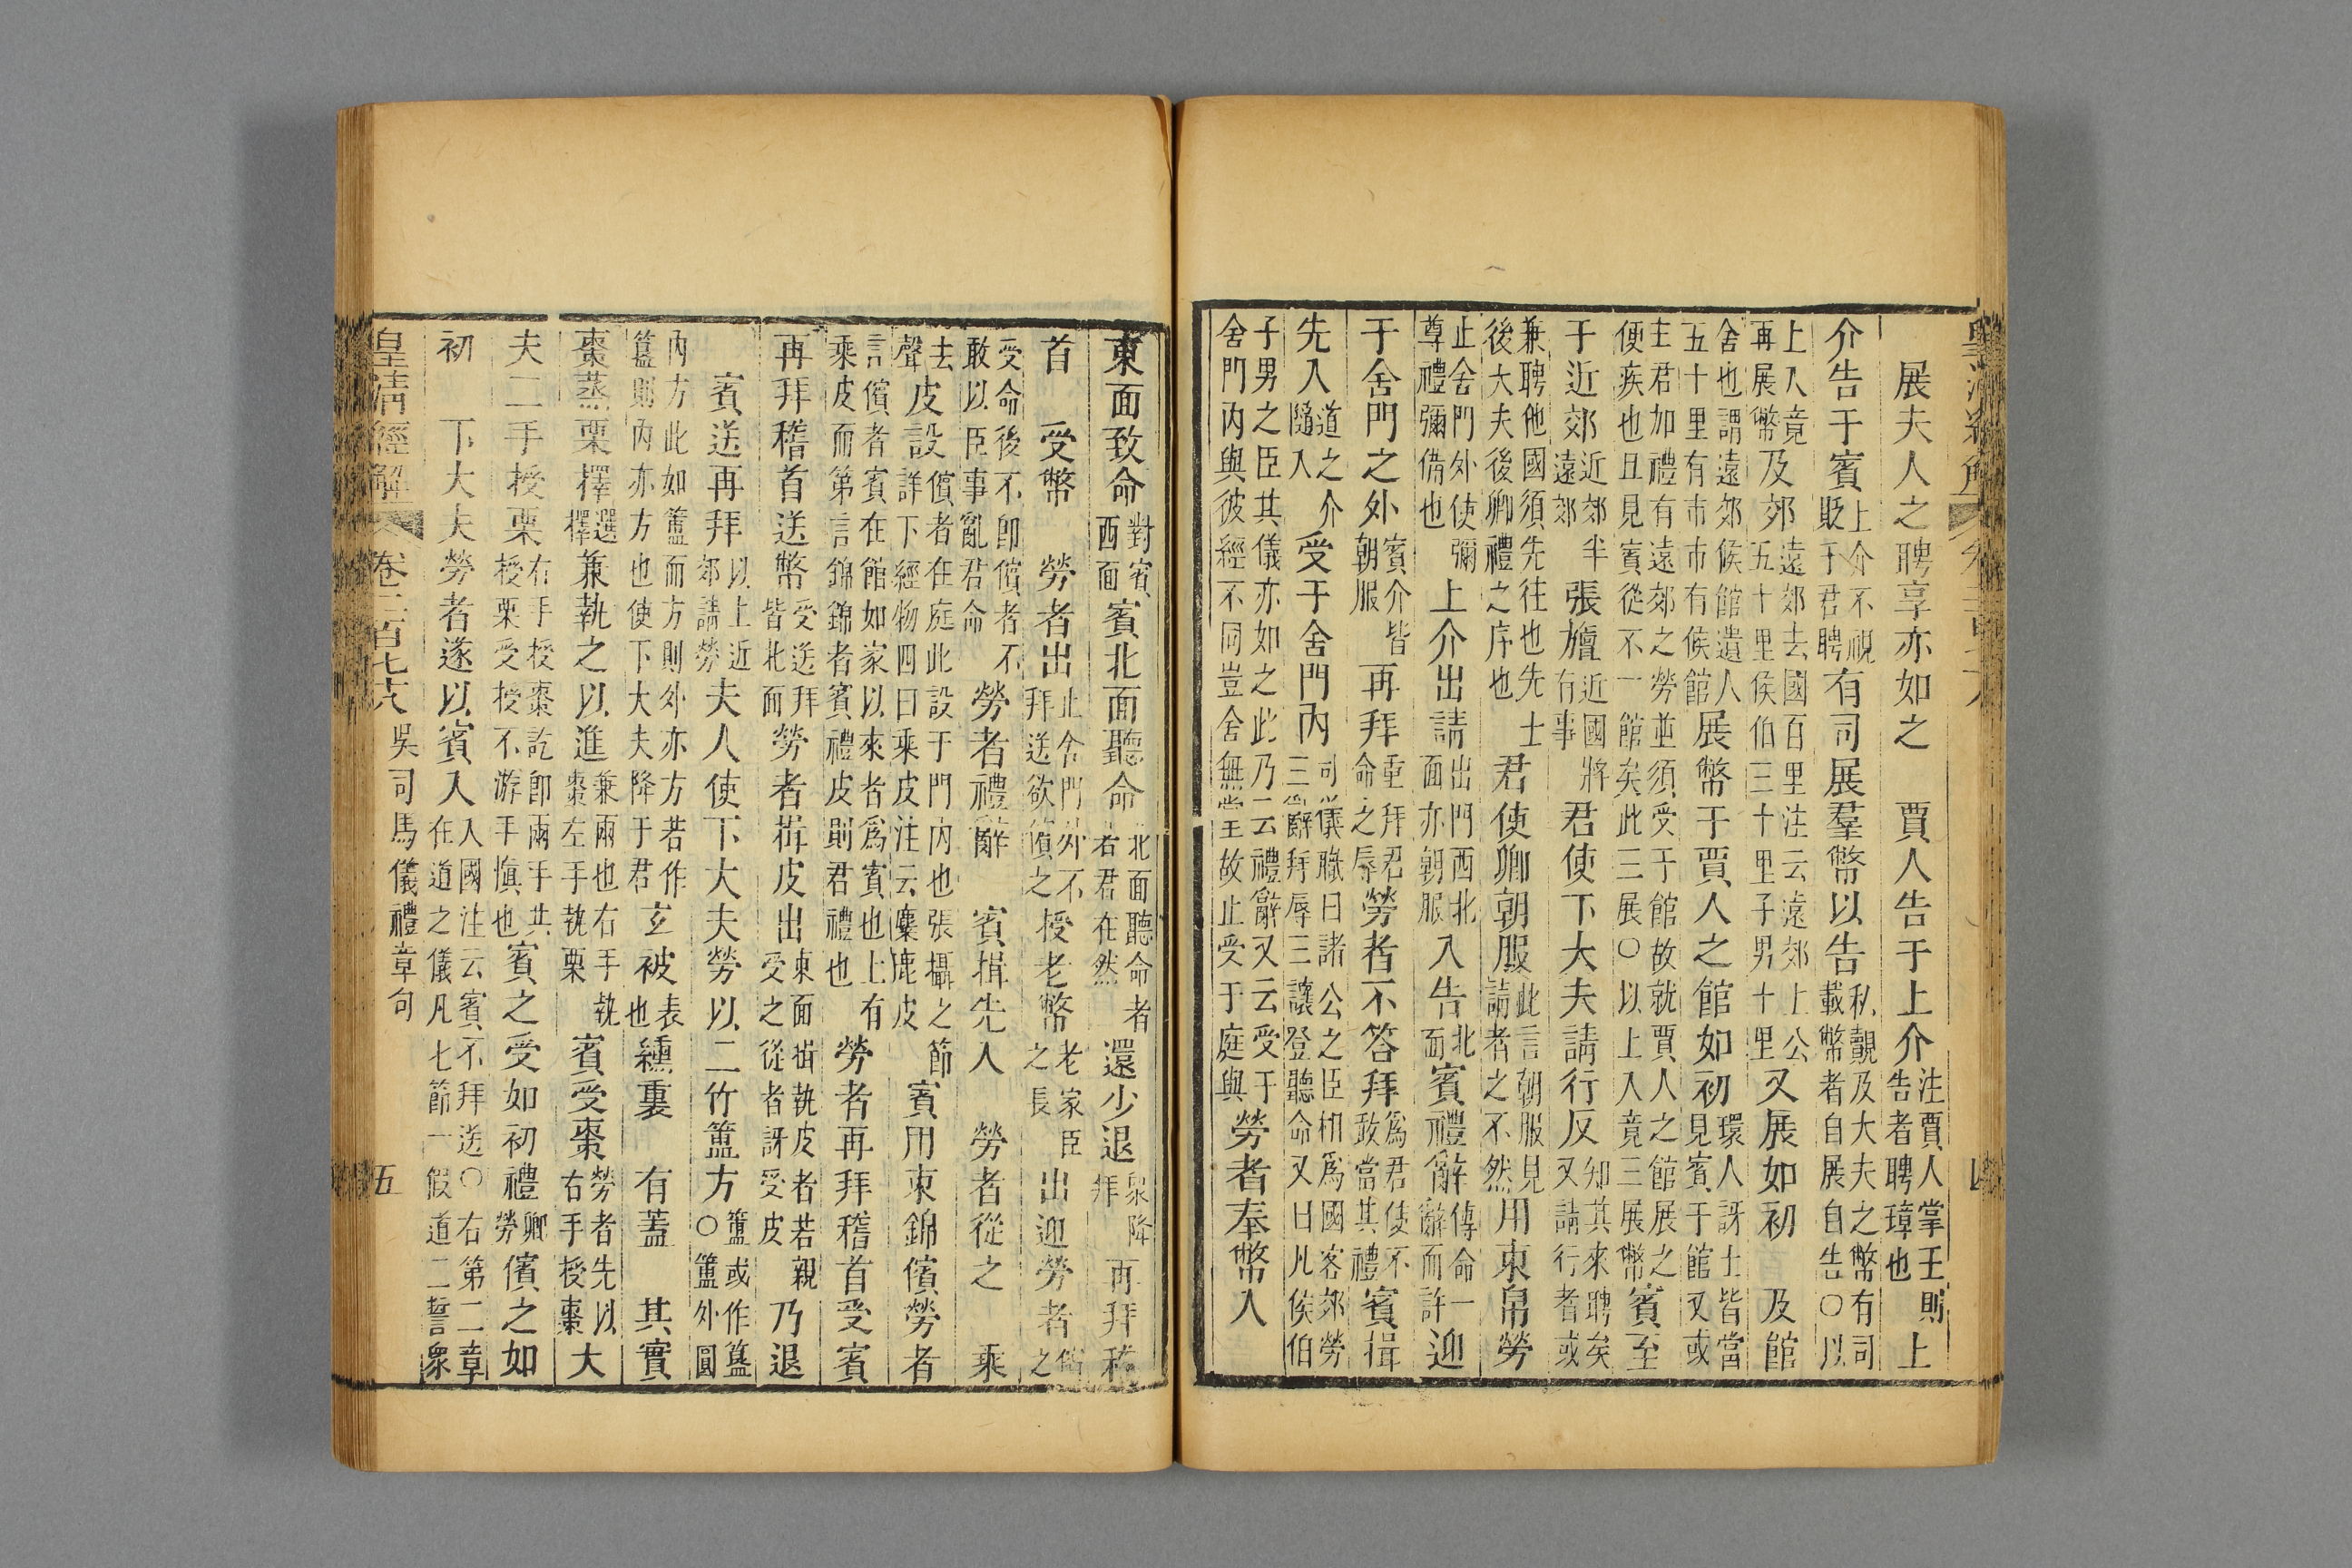 展夫人之聘享亦如之　賈人告于上介注賈人掌王則告者聘璋也上
介告于賓上介不視貶于君聘有司展羣幣以告私覿及大夫之幣有司載幣者自展自告○以
上入竟再展幣及郊遠郊去國百里注云遠郊上公五十里侯伯三十里子男十里又展如初　及館
舍也謂遠郊候館遺人五十里有市市有候館展幣于賈人之館如初環人訝士皆當見賓于館又或
主君加禮有遠郊之勞並須受于館故就賈人之館展之便疾也且見賓從不一館矣此三展○以上入竟三展幣賓至
于近郊近郊半遠郊張旜近國將有事君使下大夫請行反知其來聘矣又請行者或
兼聘他國須先往也先士後大夫後卿禮之序也君使卿朝服此言朝服見請者之不然用束帛勞
止舍門外使彌尊禮彌備也上介出請出門西北面亦朝服入告北面賓禮辭傳命一辭而許迎
于舍門之外賓介皆朝服再拜重拜君命之辱勞者不答拜爲君使不敢當其禮賓揖
先入道之介隨入受于舍門內司儀職曰諸公之臣相爲國客郊勞三辭拜辱三讓登聽命又曰凡侯伯
子男之臣其儀亦如之此乃云禮辭又云受于舍門內與彼經不同豈舍無堂故止受于庭與勞者奉幣入
東面致命對賓西面賓北面聽命北面聽命者右君在然還少退象降拜再拜稽
首　受幣　勞者出止舍門外不拜送欲儐之授老幣老家臣之長出迎勞者儐之
受命後不卽儐者不敢以臣事亂君命勞者禮辭　賓揖先入　勞者從之　乘
去聲皮設儐者在庭此設于門內也張攝之節詳下經物四曰乘皮注云麋鹿皮賓用束錦儐勞者
言儐者賓在館如家以來者爲賓也上有乘皮而第言錦錦者賓禮皮則君禮也勞者再拜稽首受賓
再拜稽首送幣受送拜皆北面勞者揖皮出東面揖執皮者若親受之從者訝受皮乃退
賓送再拜以上近郊請勞夫人使下大夫勞以二竹簠方簠或作簋○簠外圓
內方此如簠而方則外亦方若作簋則內亦方也使下大夫降于君玄被表也纁裏　有蓋　其實
棗蒸栗擇選擇兼執之以進兼兩也右手執棗左手執栗賓受棗勞者先以右手授棗大
夫二手授栗右手授棗訖卽兩手共授栗受授不游手愼也賓之受如初禮卿勞儐之如
初　下大夫勞者遂以賓入入國注云賓不拜送○右第二章在道之儀凡七節一假道二誓衆
皇清經解　卷二百七十八　吳司馬儀禮章句　五